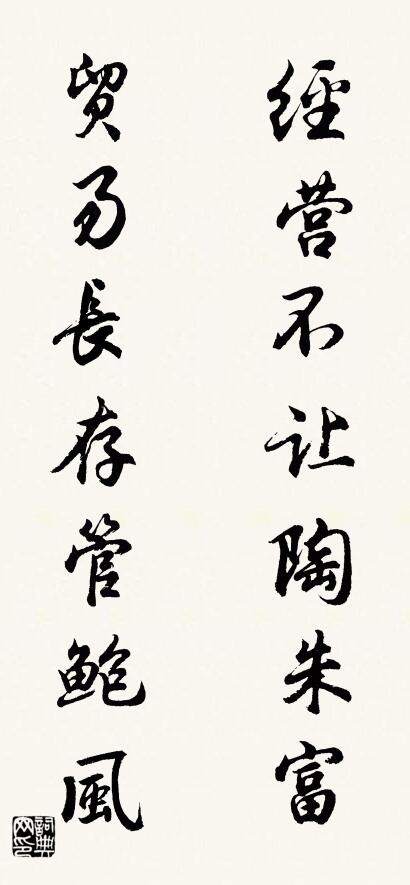 經营不让陶朱富
貿易長存管鮑風
詞典网印